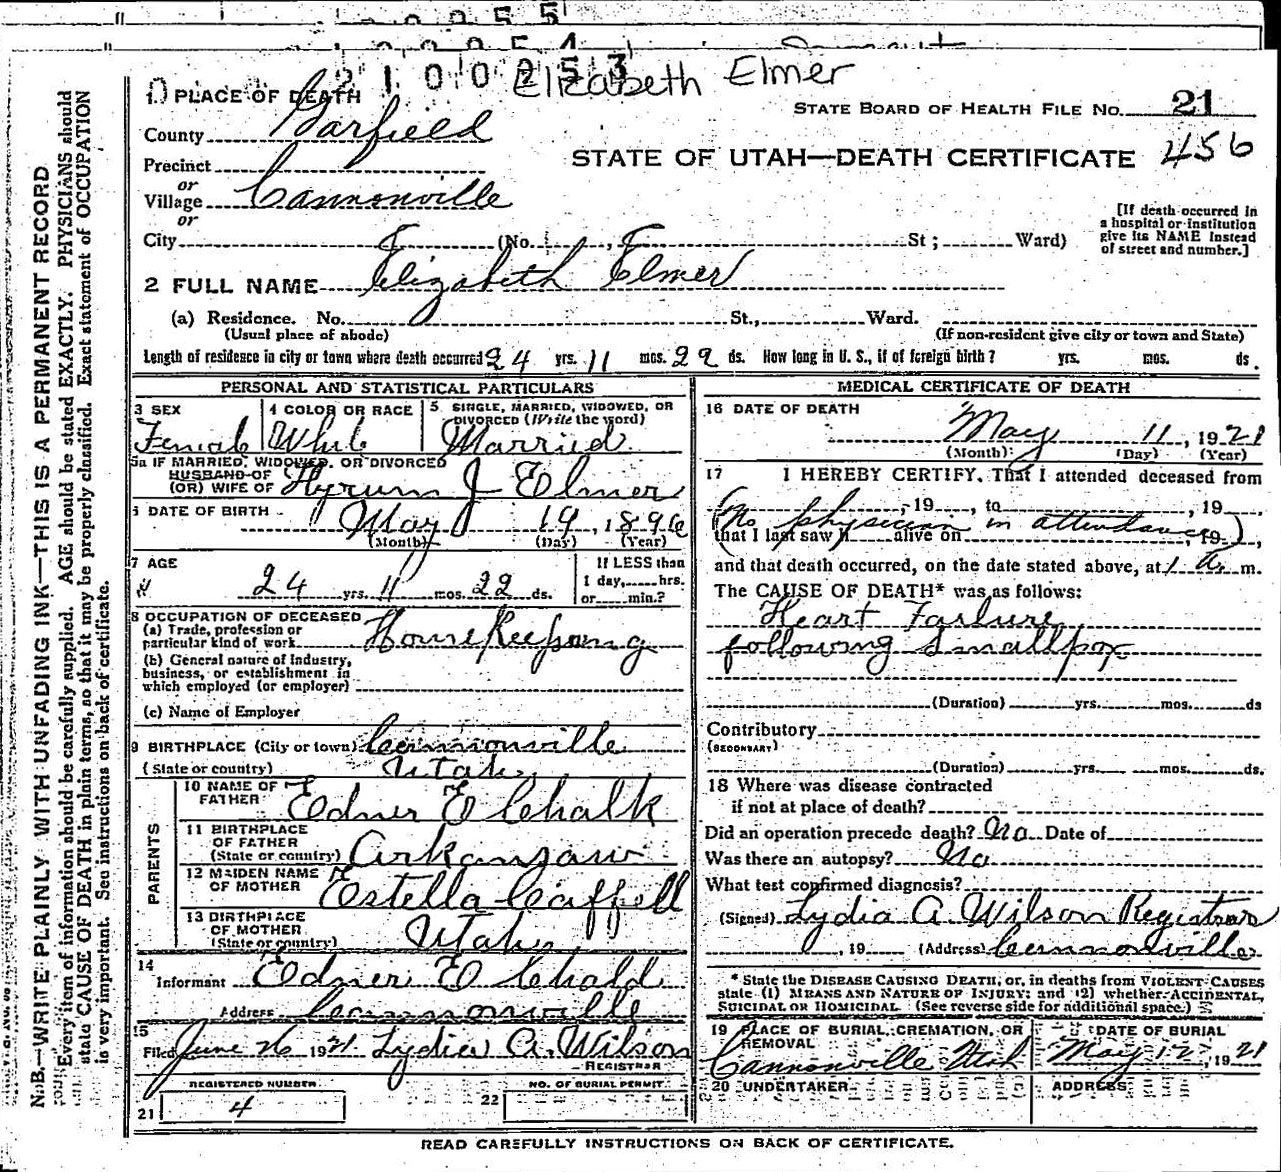 2100253
Elizabeth Elmer
1 PLACE OF DEATH
STATE BOARD OF HEALTH FILE No. 21
County Garfield
456
STATE OF UTAH—DEATH CERTIFICATE
Precinct
or
Village Cannonville
or
City (No. , St; Ward)
[If death occurred in
a hospital or institution
give its NAME instead
of street and number.]
2 FULL NAME Elizabeth Elmer
(a) Residence. No. St., Ward.
(Usual place of abode) (If non-resident give city or town and State)
Length of residence in city or town where death occurred 24 yrs. 11 mos. 22 ds. How long in U. S., if of foreign birth? yrs. mos. ds.
PERSONAL AND STATISTICAL PARTICULARS
3 SEX
Female
4 COLOR OR RACE
White
5 SINGLE, MARRIED, WIDOWED, OR
DIVORCED (Write the word)
Married
5a IF MARRIED, WIDOWED, OR DIVORCED
HUSBAND OF
(OR) WIFE OF Hyrum J Elmer
6 DATE OF BIRTH
May 19, 1896
(Month) (Day) (Year)
7 AGE
24 yrs. 11 mos. 22 ds.
If LESS than
1 day, hrs.
or min.?
8 OCCUPATION OF DECEASED
(a) Trade, profession or
particular kind of work Housekeeping
(b) General nature of industry,
business, or establishment in
which employed (or employer)
(c) Name of Employer
9 BIRTHPLACE (City or town) Cannonville
(State or country) Utah
PARENTS
10 NAME OF
FATHER Edner E Chalk
11 BIRTHPLACE
OF FATHER
(State or country) Arkansaw
12 MAIDEN NAME
OF MOTHER Estella Caffell
13 BIRTHPLACE
OF MOTHER
(State or country) Utah
14
Informant Edner E Chald
Address Cannonville
15
Filed June 26 1921 Lydia A. Wilson
REGISTRAR
REGISTERED NUMBER
21 4
NO. OF BURIAL PERMIT
22
MEDICAL CERTIFICATE OF DEATH
16 DATE OF DEATH
May 11, 1921
(Month) (Day) (Year)
17 I HEREBY CERTIFY, That I attended deceased from
, 19 , to , 19
(No physician in attendance)
that I last saw h alive on , 19 ,
and that death occurred, on the date stated above, at 1 A. m.
The CAUSE OF DEATH* was as follows:
Heart Failure
following Smallpox
(Duration) yrs. mos. ds
Contributory
(SECONDARY)
(Duration) yrs. mos. ds.
18 Where was disease contracted
if not at place of death?
Did an operation precede death? No Date of
Was there an autopsy? No
What test confirmed diagnosis?
(Signed) Lydia A. Wilson Registrar
, 19 (Address) Cannonville
* State the DISEASE CAUSING DEATH, or, in deaths from VIOLENT CAUSES
state (1) MEANS AND NATURE OF INJURY; and (2) whether ACCIDENTAL,
SUICIDAL OR HOMICIDAL (See reverse side for additional space.)
19 PLACE OF BURIAL, CREMATION, OR
REMOVAL
Cannonville Utah
DATE OF BURIAL
May 12, 1921
20 UNDERTAKER
ADDRESS
READ CAREFULLY INSTRUCTIONS ON BACK OF CERTIFICATE.
N.B.—WRITE PLAINLY WITH UNFADING INK—THIS IS A PERMANENT RECORD
Every item of information should be carefully supplied. AGE should be stated EXACTLY. PHYSICIANS should
state CAUSE OF DEATH in plain terms, so that it may be properly classified. Exact statement of OCCUPATION
is very important. See instructions on back of certificate.